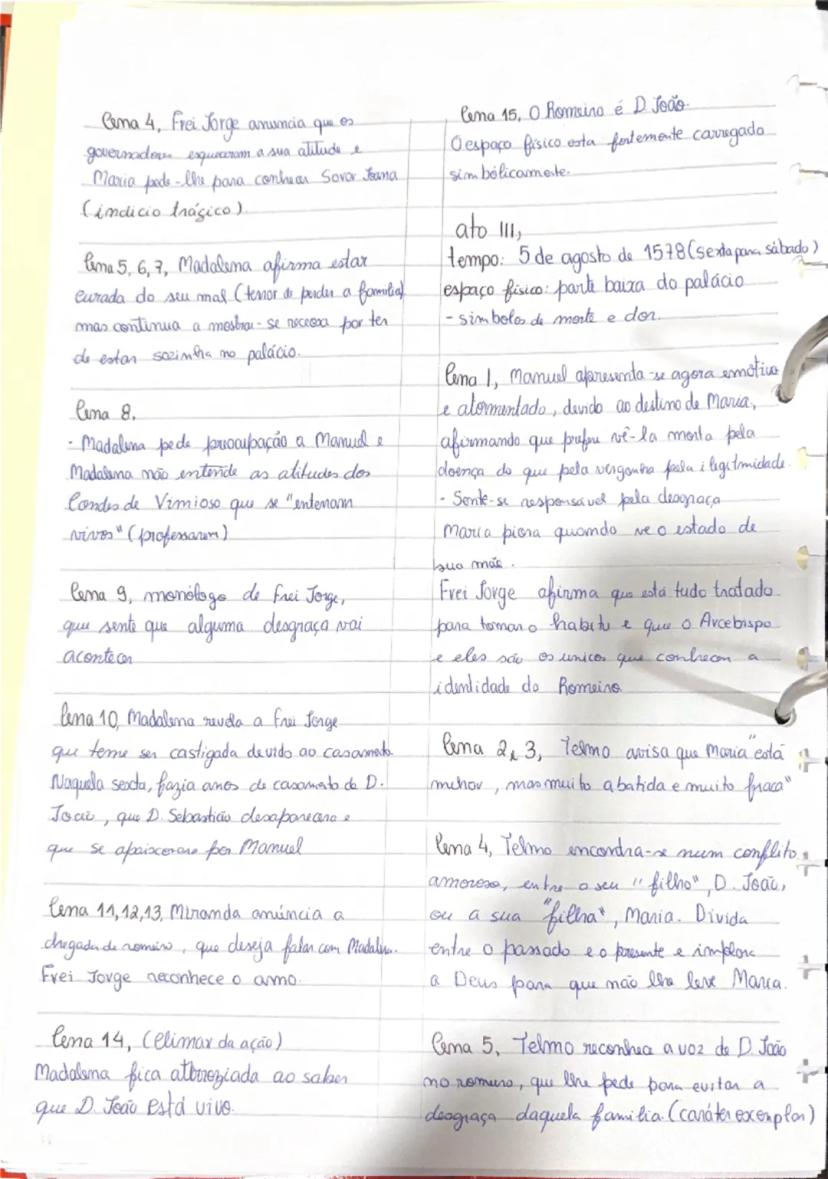 Cena 4, Frei Jorge anuncia que os
governadores esqueceram a sua atitude e
Maria pede-lhe para conhecer Soror Joana
(indício trágico).
Cena 5, 6, 7, Madalena afirma estar
curada do seu mal (terror de perder a família)
mas continua a mostrar-se receosa por ter
de estar sozinha no palácio.
Cena 8,
· Madalena pede preocupação a Manuel e
Madalena não entende as atitudes dos
Condes de Vimioso que se "enterram
vivos" (professaram)
Cena 9, monólogo de Frei Jorge,
que sente que alguma desgraça vai
acontecer
Cena 10, Madalena revela a Frei Jorge
que teme ser castigada devido ao casamento.
Naquela sexta, fazia anos de casamento de D.
João, que D. Sebastião desaparecera e
que se apaixonara por Manuel
Cena 11, 12, 13, Miranda anúncia a
chegada de romeiro, que deseja falar com Madalena.
Frei Jorge reconhece o amo.
Cena 14, (Climax da ação)
Madalena fica aterrorizada ao saber
que D. João está vivo.
Cena 15, O Romeiro é D. João.
O espaço físico esta fortemente carregado
simbólicamente.
ato III,
tempo: 5 de agosto de 1578 (sexta para sábado)
espaço físico: parte baixa do palácio
- simbolos de morte e dor.
Cena 1, Manuel apresenta-se agora emotivo
e atormentado, devido ao destino de Maria,
afirmando que prefere vê-la morta pela
doença do que pela vergonha pela ilegitmidade.
- Sente-se responsável pela desgraça
Maria piora quando ve o estado de
sua mãe.
Frei Jorge afirma que está tudo tratado
para tomar o habito e que o Arcebispo
e eles são os unicos que conhecem a
identidade do Romeiro.
Cena 2 e 3, Telmo avisa que Maria "está
melhor, mas muito abatida e muito fraca"
Cena 4, Telmo encontra-se num conflito
amoroso, entre o seu "filho", D. João,
ou a sua "filha", Maria. Divida
entre o passado e o presente e implora
a Deus para que não lhe leve Maria.
Cena 5, Telmo reconhece a voz de D. João
no romeiro, que lhe pede para evitar a
desgraça daquela familia. (caráter exemplar)